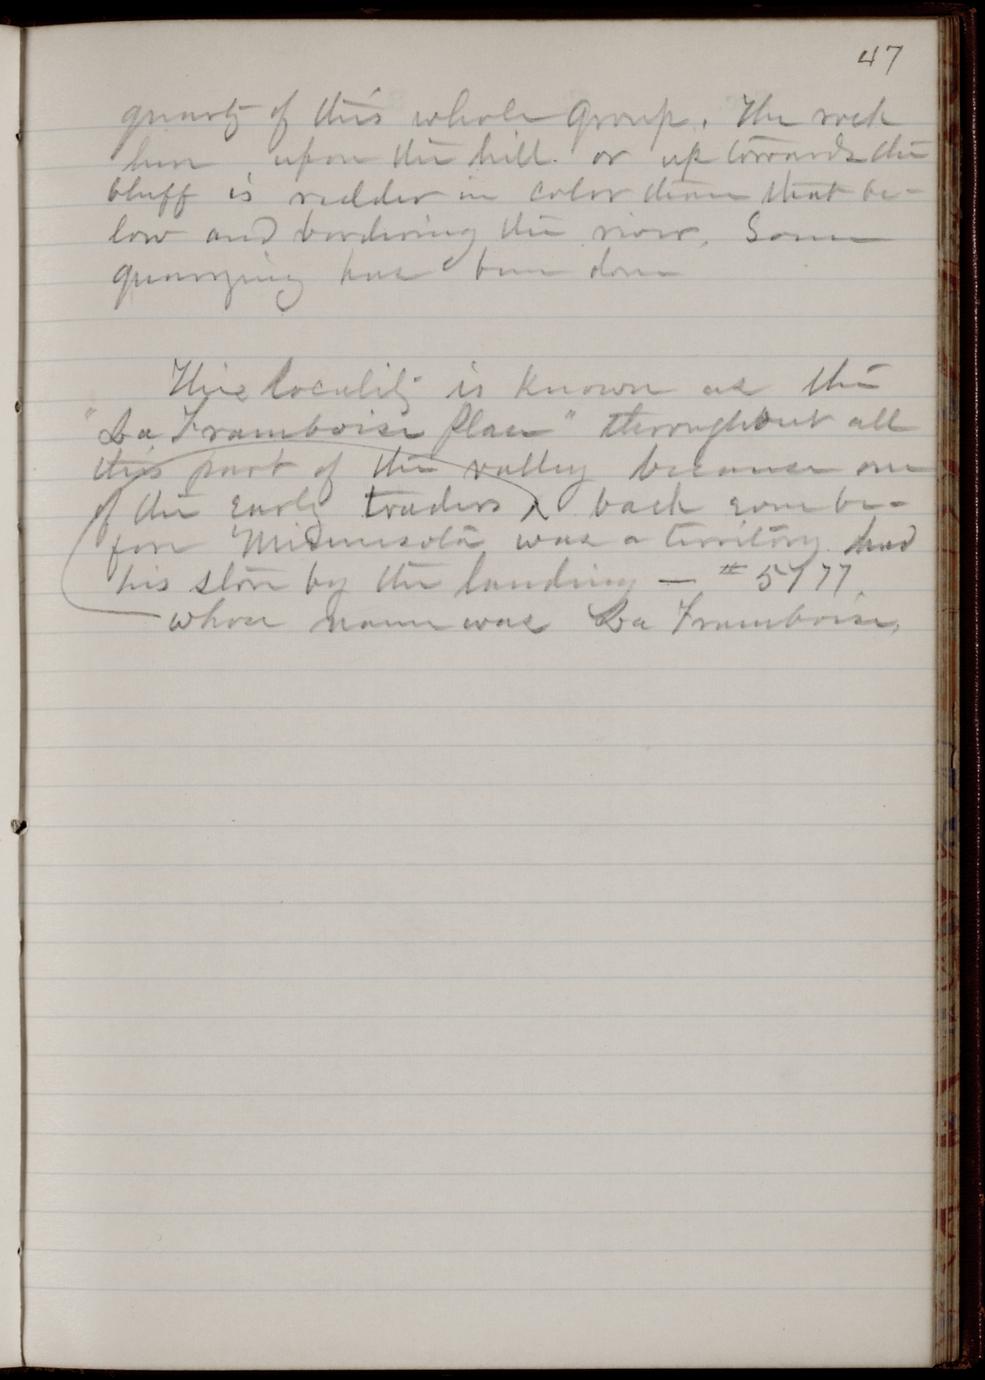 47
quartz of this whole group. The rock
here upon the hill or up towards the
bluff is redder in color than that be-
low and bordering the river. Some
quarrying has been done
This locality is known as the
"La Framboise place" throughout all
this part of the valley because one
of the early traders back some be-
fore Minnesota was a territory had
his store by the landing — # 5777
whose name was La Framboise,